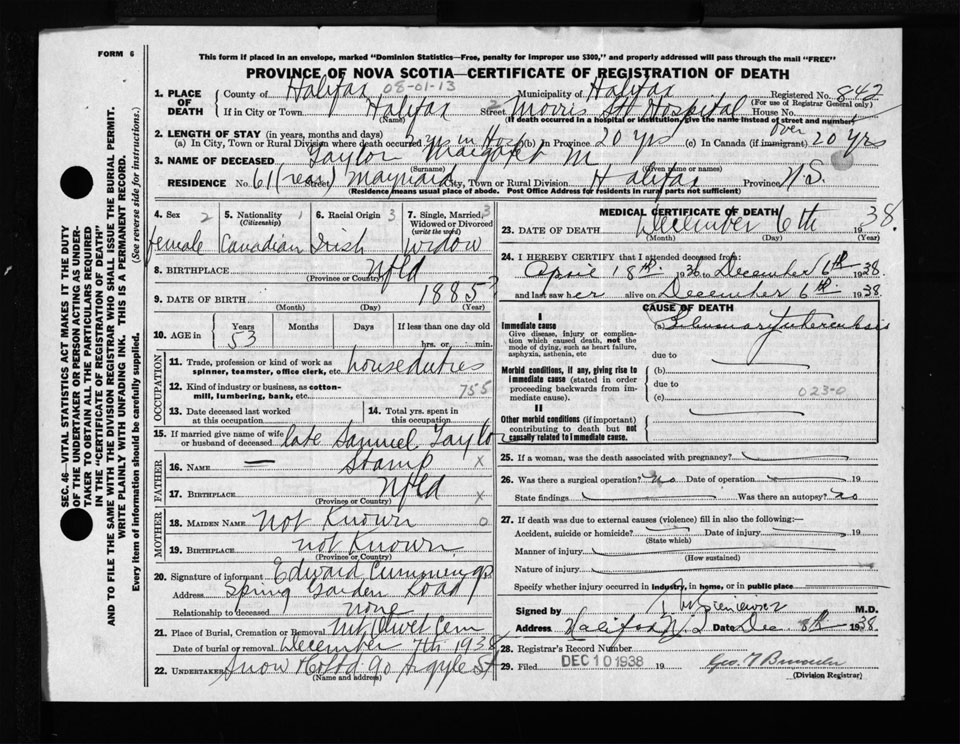 FORM 6
This form if placed in an envelope, marked "Dominion Statistics—Free, penalty for improper use $300," and properly addressed will pass through the mail "FREE"
PROVINCE OF NOVA SCOTIA—CERTIFICATE OF REGISTRATION OF DEATH
1. PLACE OF DEATH
County of Halifax 08-01-13 Municipality of Halifax Registered No. 842
(For use of Registrar General only)
If in City or Town Halifax Street 2 Morris St Hospital House No.
(Name) (If death occurred in a hospital or institution, give the name instead of street and number)
2. LENGTH OF STAY (in years, months and days)
(a) In City, Town or Rural Division where death occurred in Hosp (b) In Province 20 yrs (c) In Canada (if immigrant) over 20 yrs
3. NAME OF DECEASED Taylor Margaret M
(Surname) (Given name or names)
RESIDENCE No. 61 (rear) Street Maynard City, Town or Rural Division Halifax Province N.S.
(Residence means usual place of abode. Post Office Address for residents in rural parts not sufficient)
4. Sex 2 female
5. Nationality (Citizenship) 1 Canadian
6. Racial Origin 3 Irish
7. Single, Married, Widowed or Divorced (write the word) 3 Widow
8. BIRTHPLACE Nfld
(Province or Country)
9. DATE OF BIRTH 1885
(Month) (Day) (Year)
10. AGE in Years 53 Months Days If less than one day old
hrs. or min.
OCCUPATION
11. Trade, profession or kind of work as spinner, teamster, office clerk, etc. house duties
12. Kind of industry or business, as cotton-mill, lumbering, bank, etc. 755
13. Date deceased last worked at this occupation
14. Total yrs. spent in this occupation
15. If married give name of wife or husband of deceased late Samuel Taylor
FATHER
16. NAME — Stamp X
17. BIRTHPLACE Nfld X
(Province or Country)
MOTHER
18. MAIDEN NAME Not Known 0
19. BIRTHPLACE not Known
(Province or Country)
20. Signature of informant Edward Cummings
Address Spring Garden Road
Relationship to deceased none
21. Place of Burial, Cremation or Removal Mt Olivet Cem
Date of burial or removal December 7th 1938
22. UNDERTAKER Snow Co Ltd 90 Argyle St
(Name and address)
MEDICAL CERTIFICATE OF DEATH
23. DATE OF DEATH December 6th 1938.
(Month) (Day) (Year)
24. I HEREBY CERTIFY that I attended deceased from:
April 18th 1936 to December 6th 1938.
and last saw her alive on December 6th 1938
CAUSE OF DEATH
I
Immediate cause Pulmonary tuberculosis
Give disease, injury or complication which caused death, not the mode of dying, such as heart failure, asphyxia, asthenia, etc
due to
Morbid conditions, if any, giving rise to immediate cause (stated in order proceeding backwards from immediate cause).
(b)
due to
(c) 023-0
II
Other morbid conditions (if important) contributing to death but not causally related to immediate cause.
25. If a woman, was the death associated with pregnancy?
26. Was there a surgical operation? No Date of operation 19
State findings Was there an autopsy? no
27. If death was due to external causes (violence) fill in also the following:—
Accident, suicide or homicide? Date of injury 19
(State which)
Manner of injury
(How sustained)
Nature of injury
Specify whether injury occurred in industry, in home, or in public place
Signed by M.D.
Address Halifax N.S. Date Dec. 8th 1938.
28. Registrar's Record Number
29. Filed DEC 10 1938 19
(Division Registrar)
SEC. 46—VITAL STATISTICS ACT MAKES IT THE DUTY
OF THE UNDERTAKER OR PERSON ACTING AS UNDER-
TAKER TO OBTAIN ALL THE PARTICULARS REQUIRED
IN THE "CERTIFICATE OF REGISTRATION OF DEATH"
AND TO FILE THE SAME WITH THE DIVISION REGISTRAR WHO SHALL ISSUE THE BURIAL PERMIT.
WRITE PLAINLY WITH UNFADING INK. THIS IS A PERMANENT RECORD.
Every item of information should be carefully supplied. (See reverse side for instructions.)